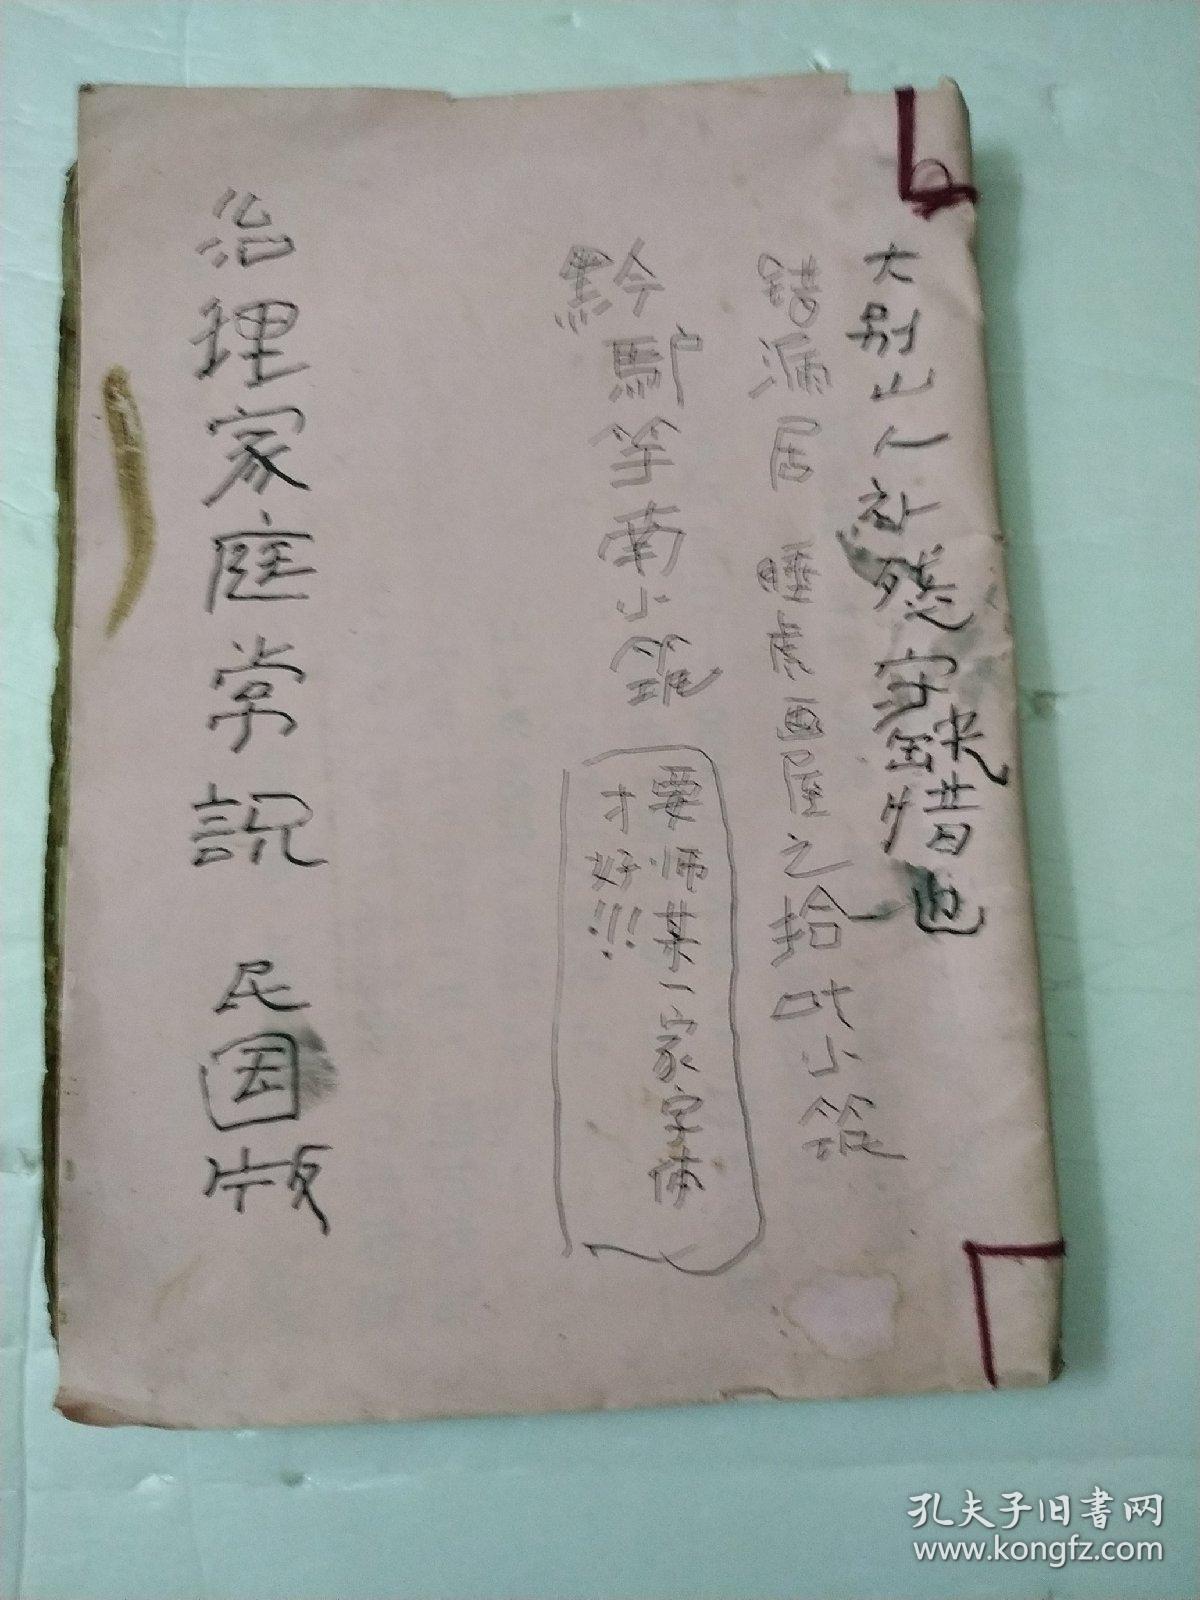 大别山人社残 缺惜也
错漏居 睡虎画匠之拾 小筑
黔驴竽南小筑
要师某一家字体
才好!!!
治理家庭常説 民国版
孔夫子旧书网
www.kongfz.com